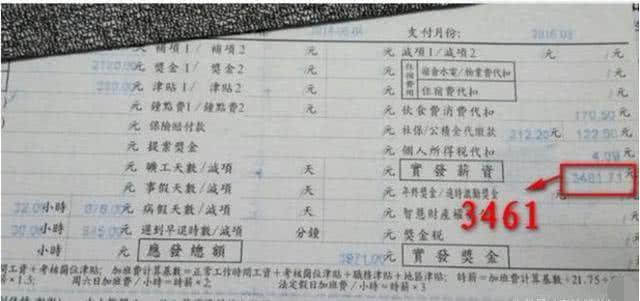 支付月份: 2016.03
補項1/ 補項2 元 減項1/減項2 元
2120.00元 獎金1/ 獎金2 元 住宿費用 宿舍水電/物業費代扣 元
元 津貼1/ 津貼2 元 住宿費代扣 元
元 鐘點費1/鐘點費2 元 伙食費消費代扣 170.50元
元 保險賠付款 元 社保/公積金代繳款 212.20元 122.50元
元 提案獎金 元 個人所得稅代扣 4.09元
元 曠工天數/減項 天 元 實發薪資 3461.71元
元 事假天數/減項 天 元 年終獎金
小時 元 病假天數/減項 天 元 智慧財產權
小時 元 遲到早退時數/減項 分鐘 元 獎金稅 元
小時 元 應發總額 3971.00元 實發獎金 元
3461
加班費計算基數=正常工作時間工資+考核崗位津貼+職務津貼+地區津貼; 時薪=加班費計算基數÷21.75÷
×1.5; 周六日加班費/小時=時薪×2 法定假日加班費/小時=時薪×3